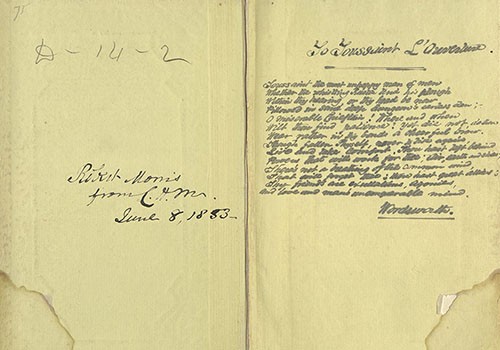 D-14-2
Robert Morris
from C. H. M.
June 8, 1883-
To Toussaint L'Ouverture.
Toussaint the most unhappy man of men
Whether the whistling Rustic tend his plough
Within thy hearing, or thy head be now
Pillowed in some deep dungeon's earless den:-
O miserable Chieftain! Where and when
Wilt thou find patience! Yet die not do thou
Wear rather in thy bonds a cheerful brow.
Though fallen thyself never to rise again
Live and take comfort. Thou hast left behind
Powers that will work for thee, air, earth and skies
There's not a breathing of the common wind
That will forget thee: thou hast great allies;
Thy friends are exultations, agonies,
And love and man's unconquerable mind.
Wordsworth.